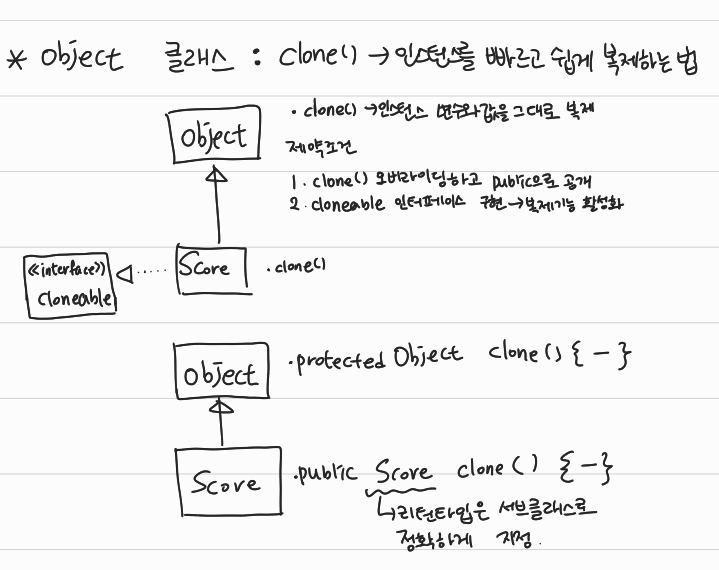 * Object 클래스 : clone() → 인스턴스를 빠르고 쉽게 복제하는 법
Object
· clone() → 인스턴스 변수와 값을 그대로 복제
제약조건
1. clone() 오버라이딩하고 public으로 공개
2. cloneable 인터페이스 구현 → 복제기능 활성화
<<interface>>
Cloneable
Score
·clone()
Object
·protected Object clone() { - }
Score
·public Score clone() { - }
↳리턴타입은 서브클래스로
정확하게 지정.